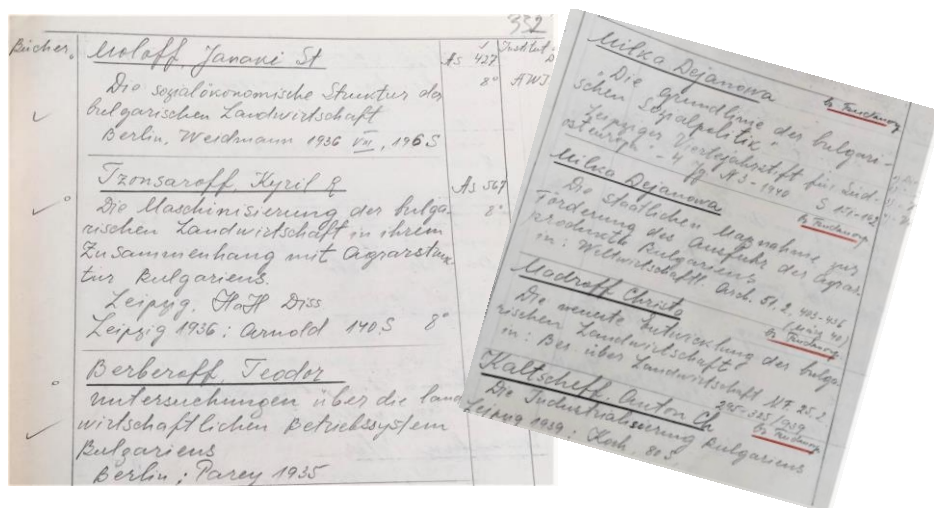 332
Bücher.
Moloff, Janaki St
As 427
Institut
8° AWI
Die sozialökonomische Struktur der
bulgarischen Landwirtschaft
Berlin, Weidmann 1936 VII, 196 S
Tzonsaroff, Kyril
As 567
8°
Die Maschinisierung der bulga-
rischen Landwirtschaft in ihrem
Zusammenhang mit Agrarstruk-
tur Bulgariens.
Leipzig, HaH Diss
Leipzig 1936: Arnold 140 S 8°
Berberoff, Teodor
Untersuchungen über die land
wirtschaftlichen Betriebssystem
Bulgariens
Berlin; Parey 1935
Milka Dejanowa
"Die Grundlinie der bulgari-
schen Sozialpolitik"
Leipziger Vierteljahrschrift für Süd-
osteuropa - 4 Jg N3 - 1940 S 151-162
Milka Dejanowa
Die staatlichen Massnahme zur
Förderung des Ausfuhr der Agrar
produkte Bulgariens
in: Weltwirtschaftl. Arch. 51.2, 403-436
(März 40)
Madroff Christo
Die neueste Entwicklung der bulga
rischen Landwirtschaft
in: Ber. über Landwirtschaft NF. 25.2
295-335 1939
Kaltscheff, Anton Ch
Die Industrialisierung Bulgariens
Leipzig 1939; Koch, 80 S